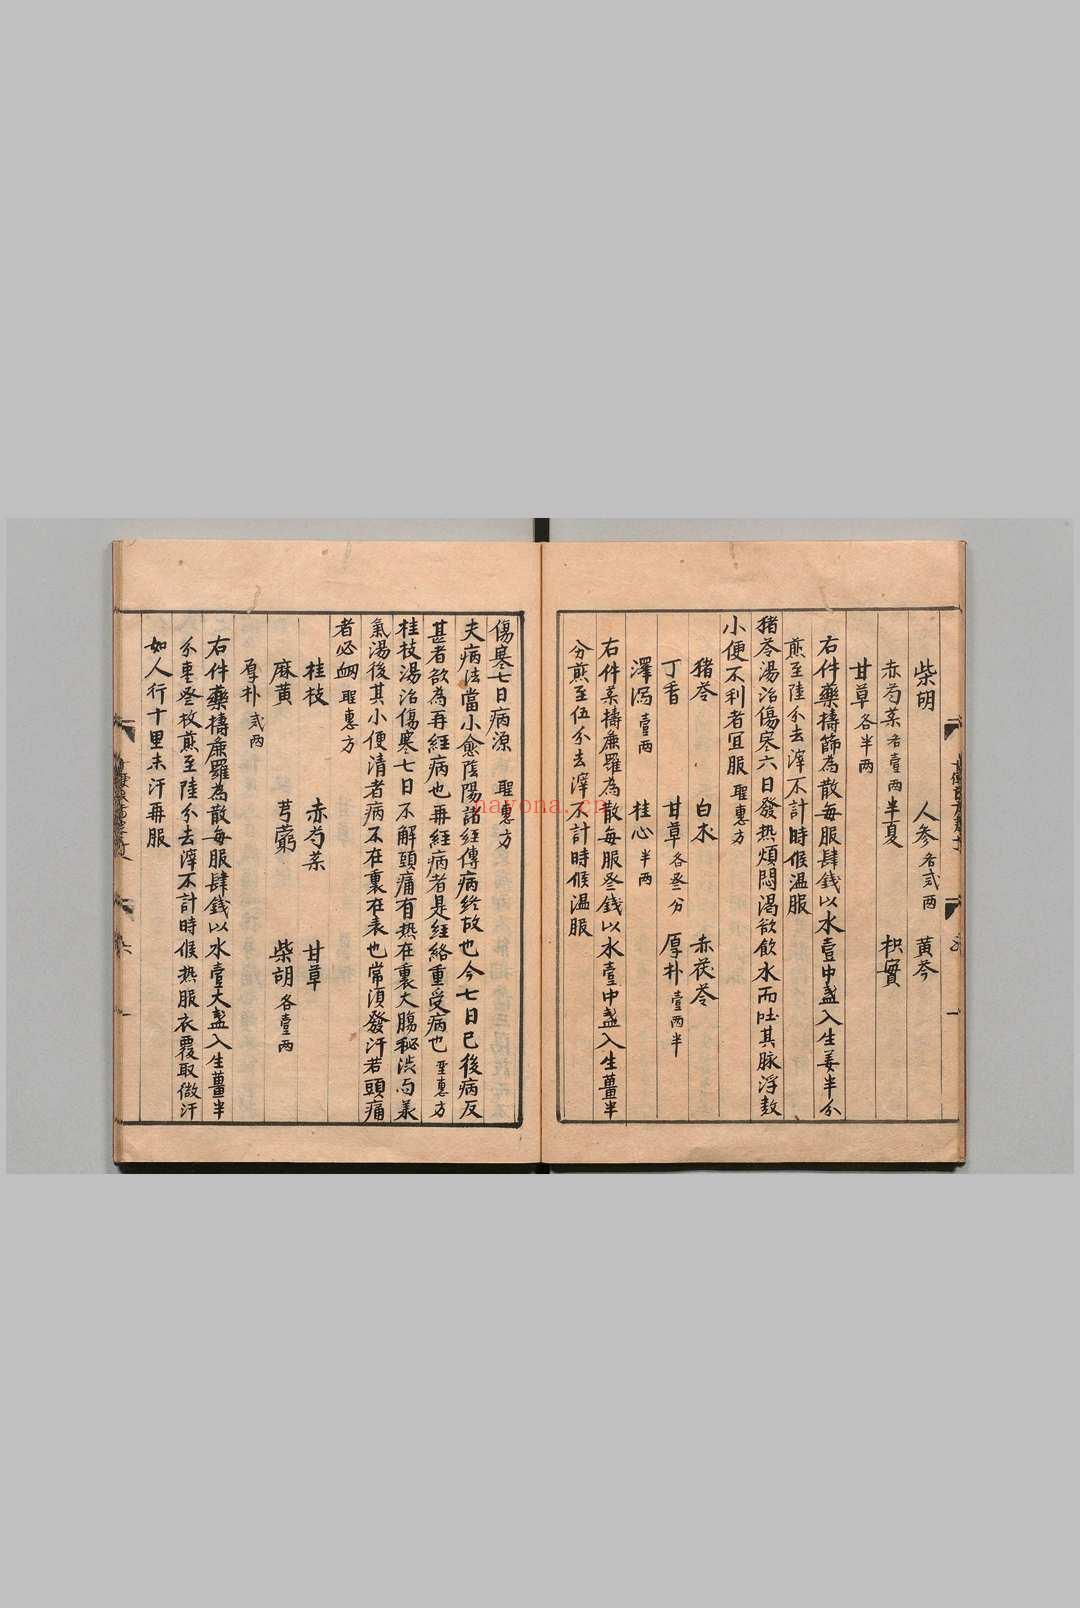 柴胡　人參各貳兩　黃芩
赤芍藥各壹兩　半夏　枳實
甘草各半兩
右件藥擣篩為散每服肆錢以水壹中盞入生姜半分
煎至陸分去滓不計時候温服
猪苓湯治傷寒六日發热煩悶渴欲飲水而吐其脉浮数
小便不利者宜服聖惠方
猪苓　白术　赤茯苓
丁香　甘草各叁分　厚朴壹两半
澤瀉壹两　桂心半两
右件藥擣麁羅為散每服叁錢以水壹中盞入生薑半
分煎至伍分去滓不計時候温服
傷寒七日病源　聖惠方
夫病法當小愈陰陽諸經傳病终故也今七日已後病反
甚者欲為再經病也再經病者是经絡重受病也聖惠方
桂枝湯治傷寒七日不解頭痛有热在裏大腸秘澁与承
氣湯後其小便清者病不在裏在表也常須發汗若頭痛
者必衂聖惠方
桂枝　赤芍藥　甘草
麻黄　芎藭　柴胡各壹两
厚朴貳两
右件藥擣麁羅為散每服肆錢以水壹大盞入生薑半
分枣叁枚煎至陸分去滓不計時候热服衣覆取微汗
如人行十里未汗再服
nayona.cn